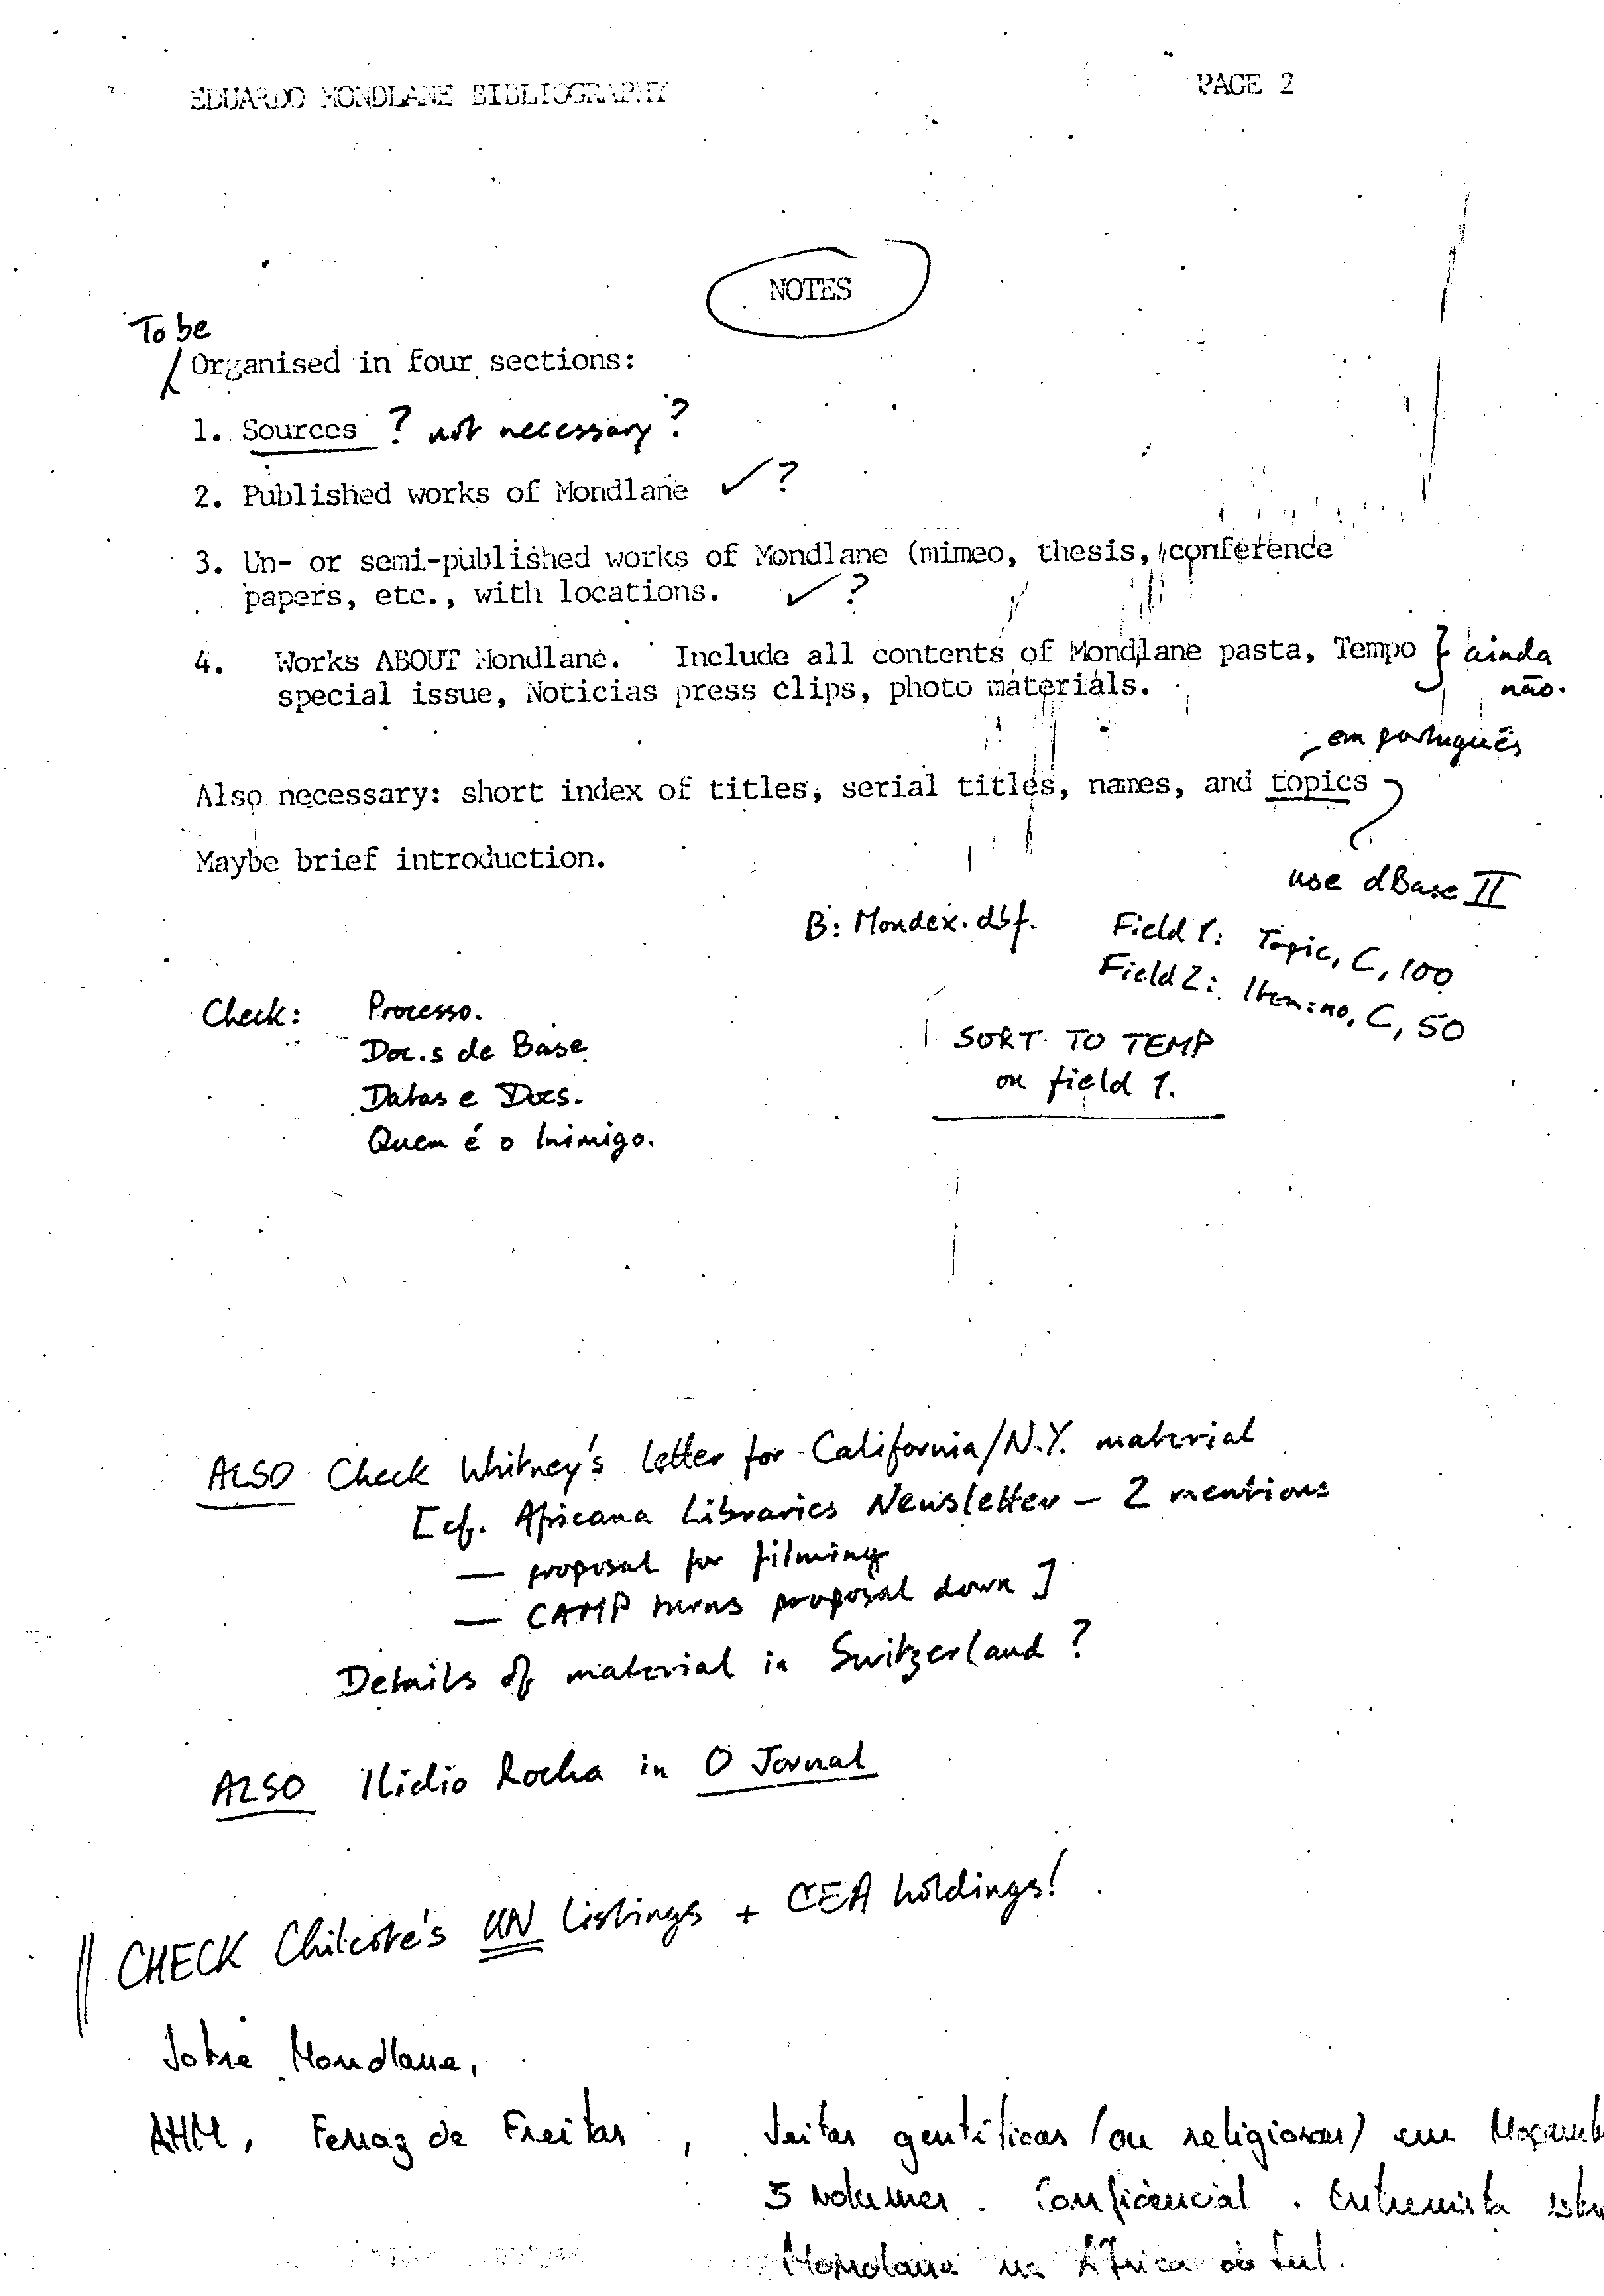 EDUARDO MONDLANE BIBLIOGRAPHY PAGE 2
NOTES
To be
Organised in four sections:
1. Sources ? not necessary?
2. Published works of Mondlane ✓?
3. Un- or semi-published works of Mondlane (mimeo, thesis, conference
papers, etc., with locations. ✓?
4. Works ABOUT Mondlane. Include all contents of Mondlane pasta, Tempo } ainda
special issue, Noticias press clips, photo materials. não.
em português
Also necessary: short index of titles, serial titles, names, and topics
Maybe brief introduction.
use dBase II
B: Mondex.dbf. Field 1: Topic, C, 100
Field 2: Item:no, C, 50
Check: Processo.
Doc.s de Base
Datas e Docs.
Quem é o Inimigo.
SORT TO TEMP
on field 1.
ALSO Check Whitney's letter for California/N.Y. material
[cf. Africana Libraries Newsletter – 2 mentions
— proposal for filming
— CAMP turns proposal down]
Details of material in Switzerland?
ALSO Ilidio Rocha in O Jornal
|| CHECK Chilcote's UN listings + CEA holdings!
Sobre Mondlane,
AHM, Ferraz de Freitas, Seitas gentílicas (ou religiosas) em Moçamb
3 volumes. Confidencial. Entrevista
Mondlane na África do Sul.